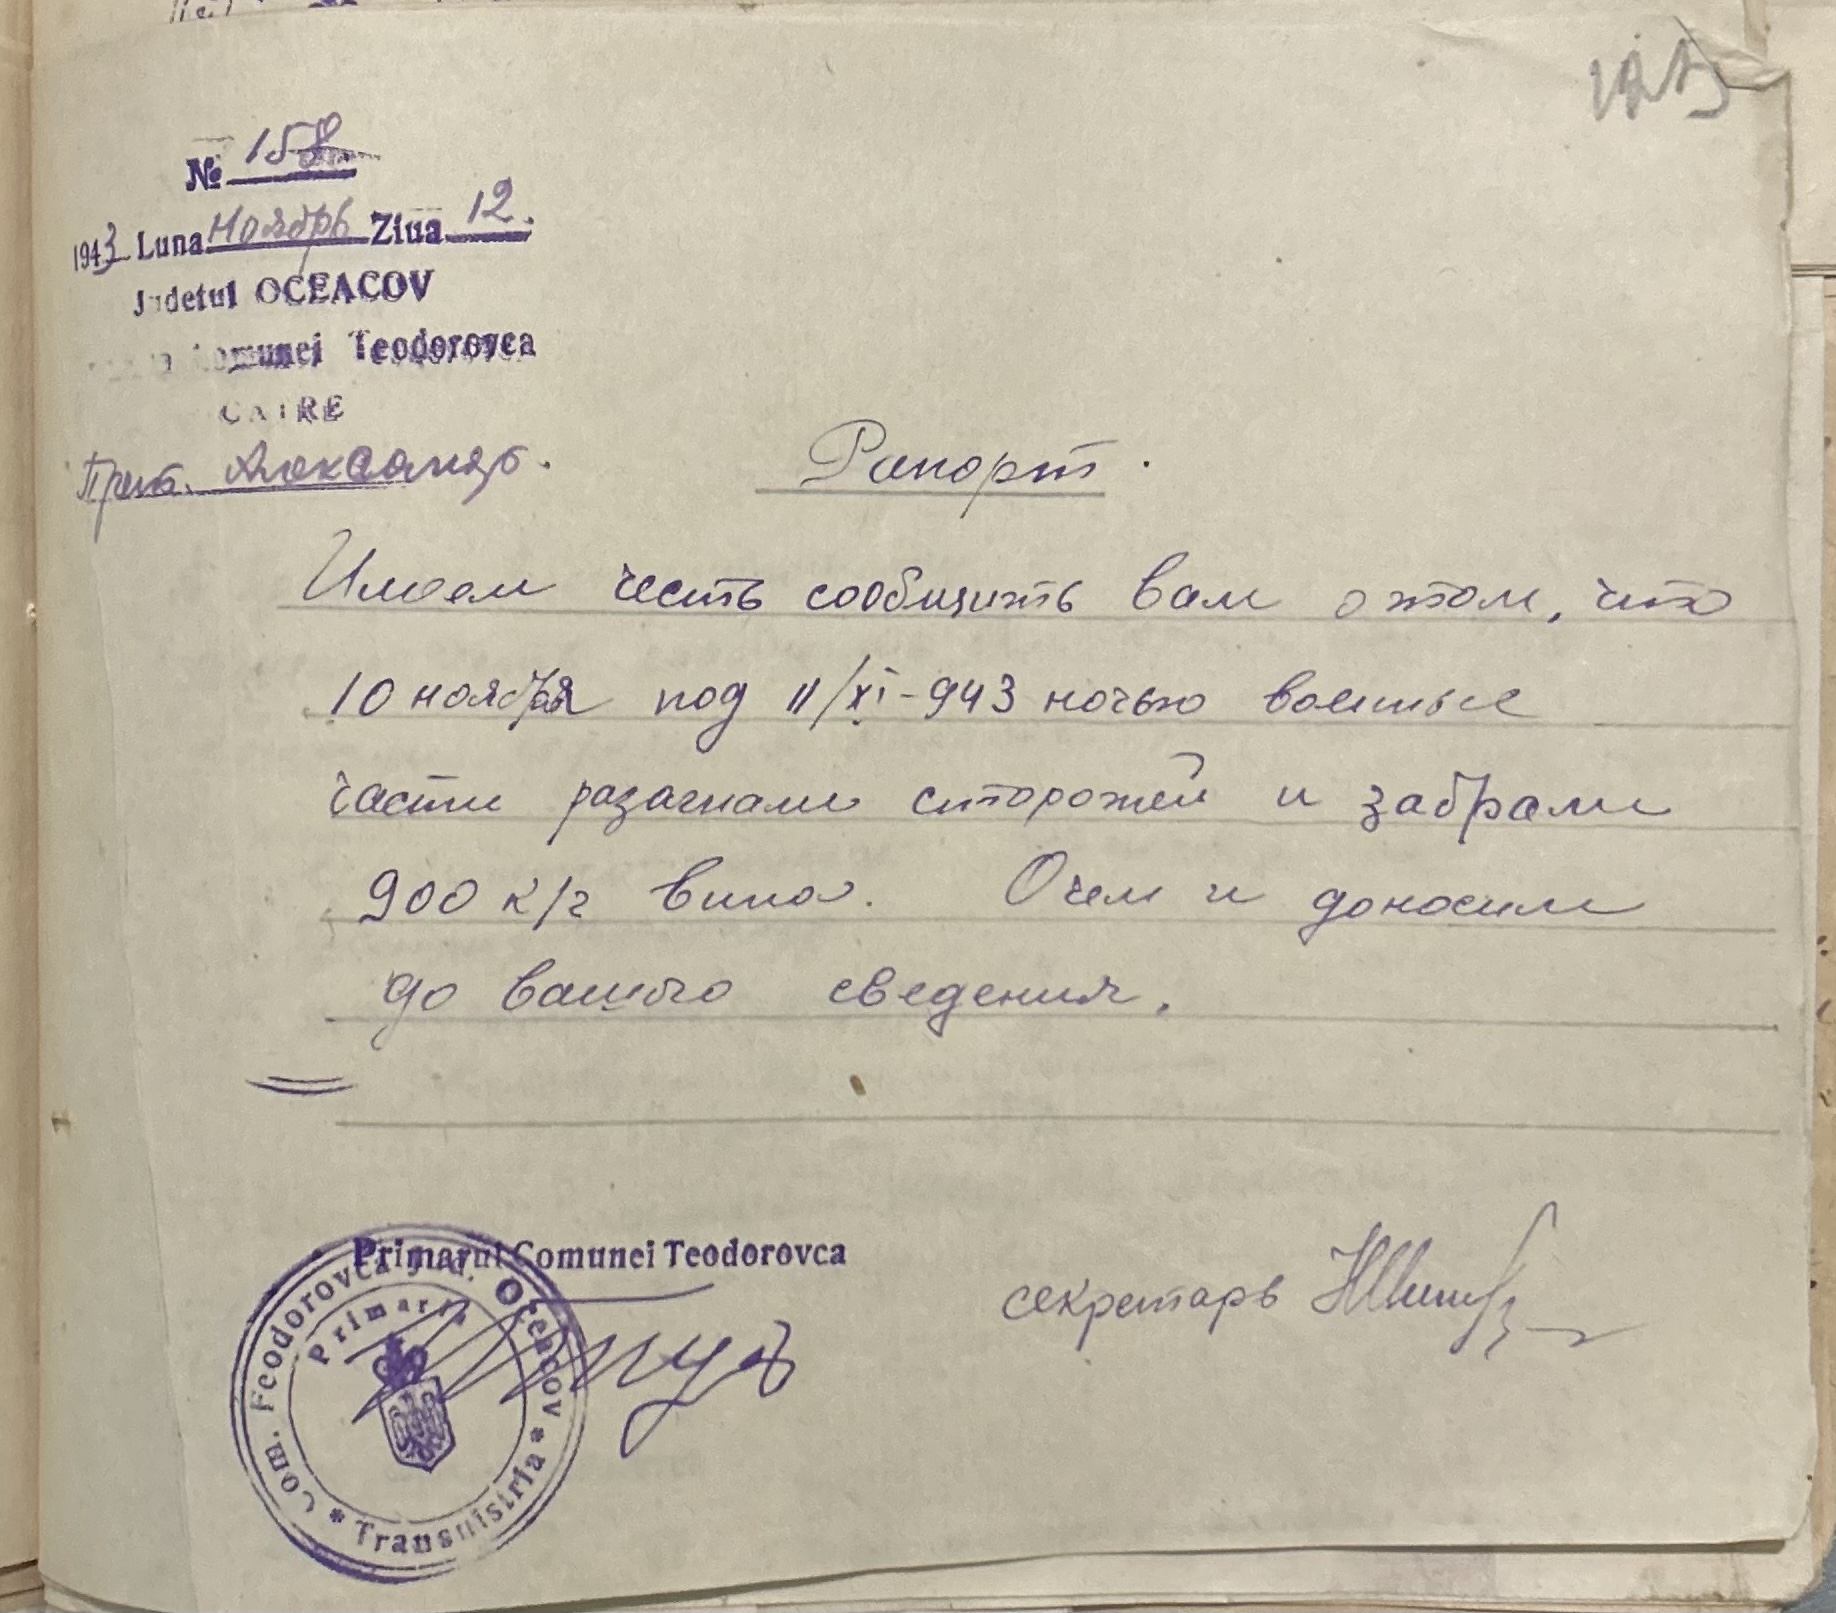 № 158
1943 Luna Ноябрь Ziua 12.
Judetul OCEACOV
Comunei Teodorovca
CATRE
Рапорт.
Имеем честь сообщить вам о том, что
10 ноября под 11/XI-943 ночью военные
части разагнали сторожей и забрали
900 к/г вина. Очем и доносим
до вашего сведения.
Primarul Comunei Teodorovca
секретарь
Com. Feodorovca Jud. Oceacov
Primaria
* Transnistria *